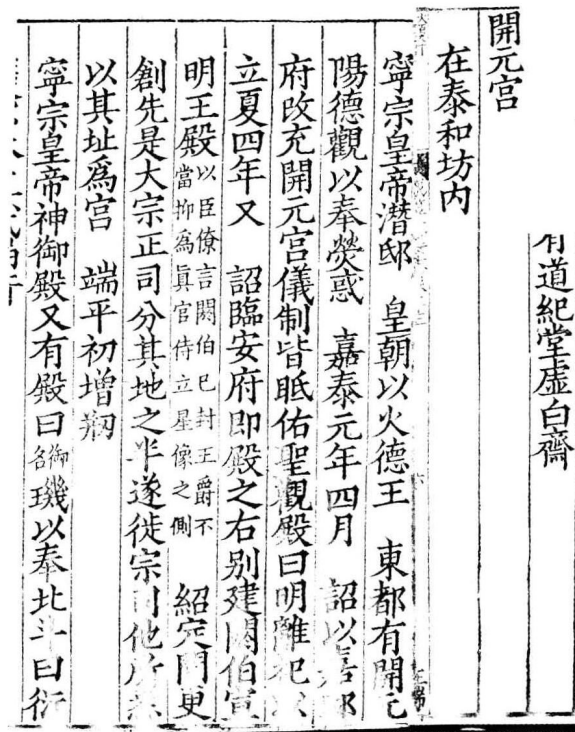 有道紀堂虛白齋
開元宫
在泰和坊内
寧宗皇帝潛邸 皇朝以火德王 東都有開元
陽德觀以奉熒惑 嘉泰元年四月 詔以嘉邸
府改充開元宫儀制皆眡佑聖觀殿曰明離祀以
立夏四年又 詔臨安府即殿之右别建閼伯宣
明王殿以臣僚言閼伯已封王爵不當抑爲眞官侍立星像之側 紹定門更
創先是大宗正司分其地之半遂徙宗司他所
以其址爲宫 端平初增剏
寧宗皇帝神御殿又有殿曰御名璣以奉北斗曰衍